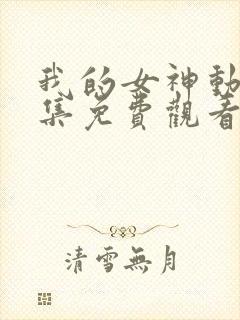 我的女神動
集免費觀看
清雪無月